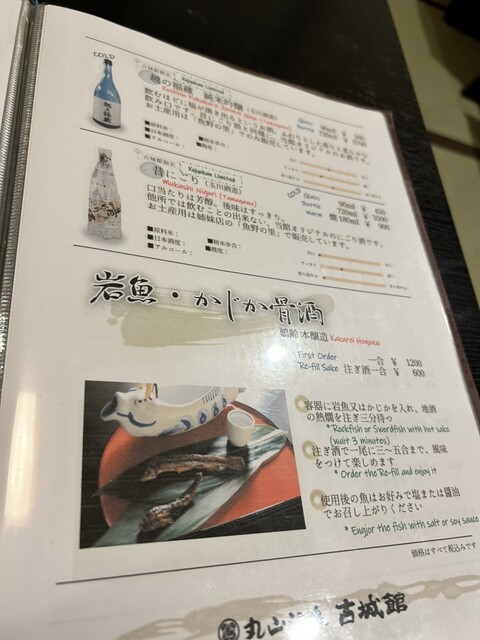 COLD
古城館限定 Kojyokan Limited
越の福蔵 純米吟醸 (玉川酒造)
Glass 90ml ¥ 500
Bottle 720ml ¥
■原料米:
■日本酒度:
■アルコール:
■精米歩合:
古城館限定 Kojyokan Limited
昔にごり (玉川酒造)
Mukashi Nigori (Tamagawa)
口当たりは芳醇。後味はすっきり。
他所では飲むことの出来ない、当館オリジナルのにごり酒です。
お土産用は姉妹店の「魚野の里」で販売しています。
COLD
Glass 90ml ¥ 450
Bottle 720ml ¥ 3500
Warm 燗 180ml ¥ 900
■原料米:
■日本酒度:
■アルコール:
■精米歩合:
■酸度:
岩魚・かじか骨酒
鶴齢 本醸造 Kakurei Honjozo
First Order 一合 ¥ 1200
Re-fill Sake 注ぎ酒一合 ¥ 600
容器に岩魚又はかじかを入れ、地酒
の熱燗を注ぎ三分待つ
* Rockfish or Swordfish with hot sake
(wait 3 minutes)
注ぎ酒で一尾に三~五合まで、風味
をつけて楽しめます
* Order the Re-fill and enjoy it
使用後の魚はお好みで塩または醤油
でお召し上がりください
* Enojor the fish with salt or soy sauce
価格はすべて税込みです
丸山 古城館